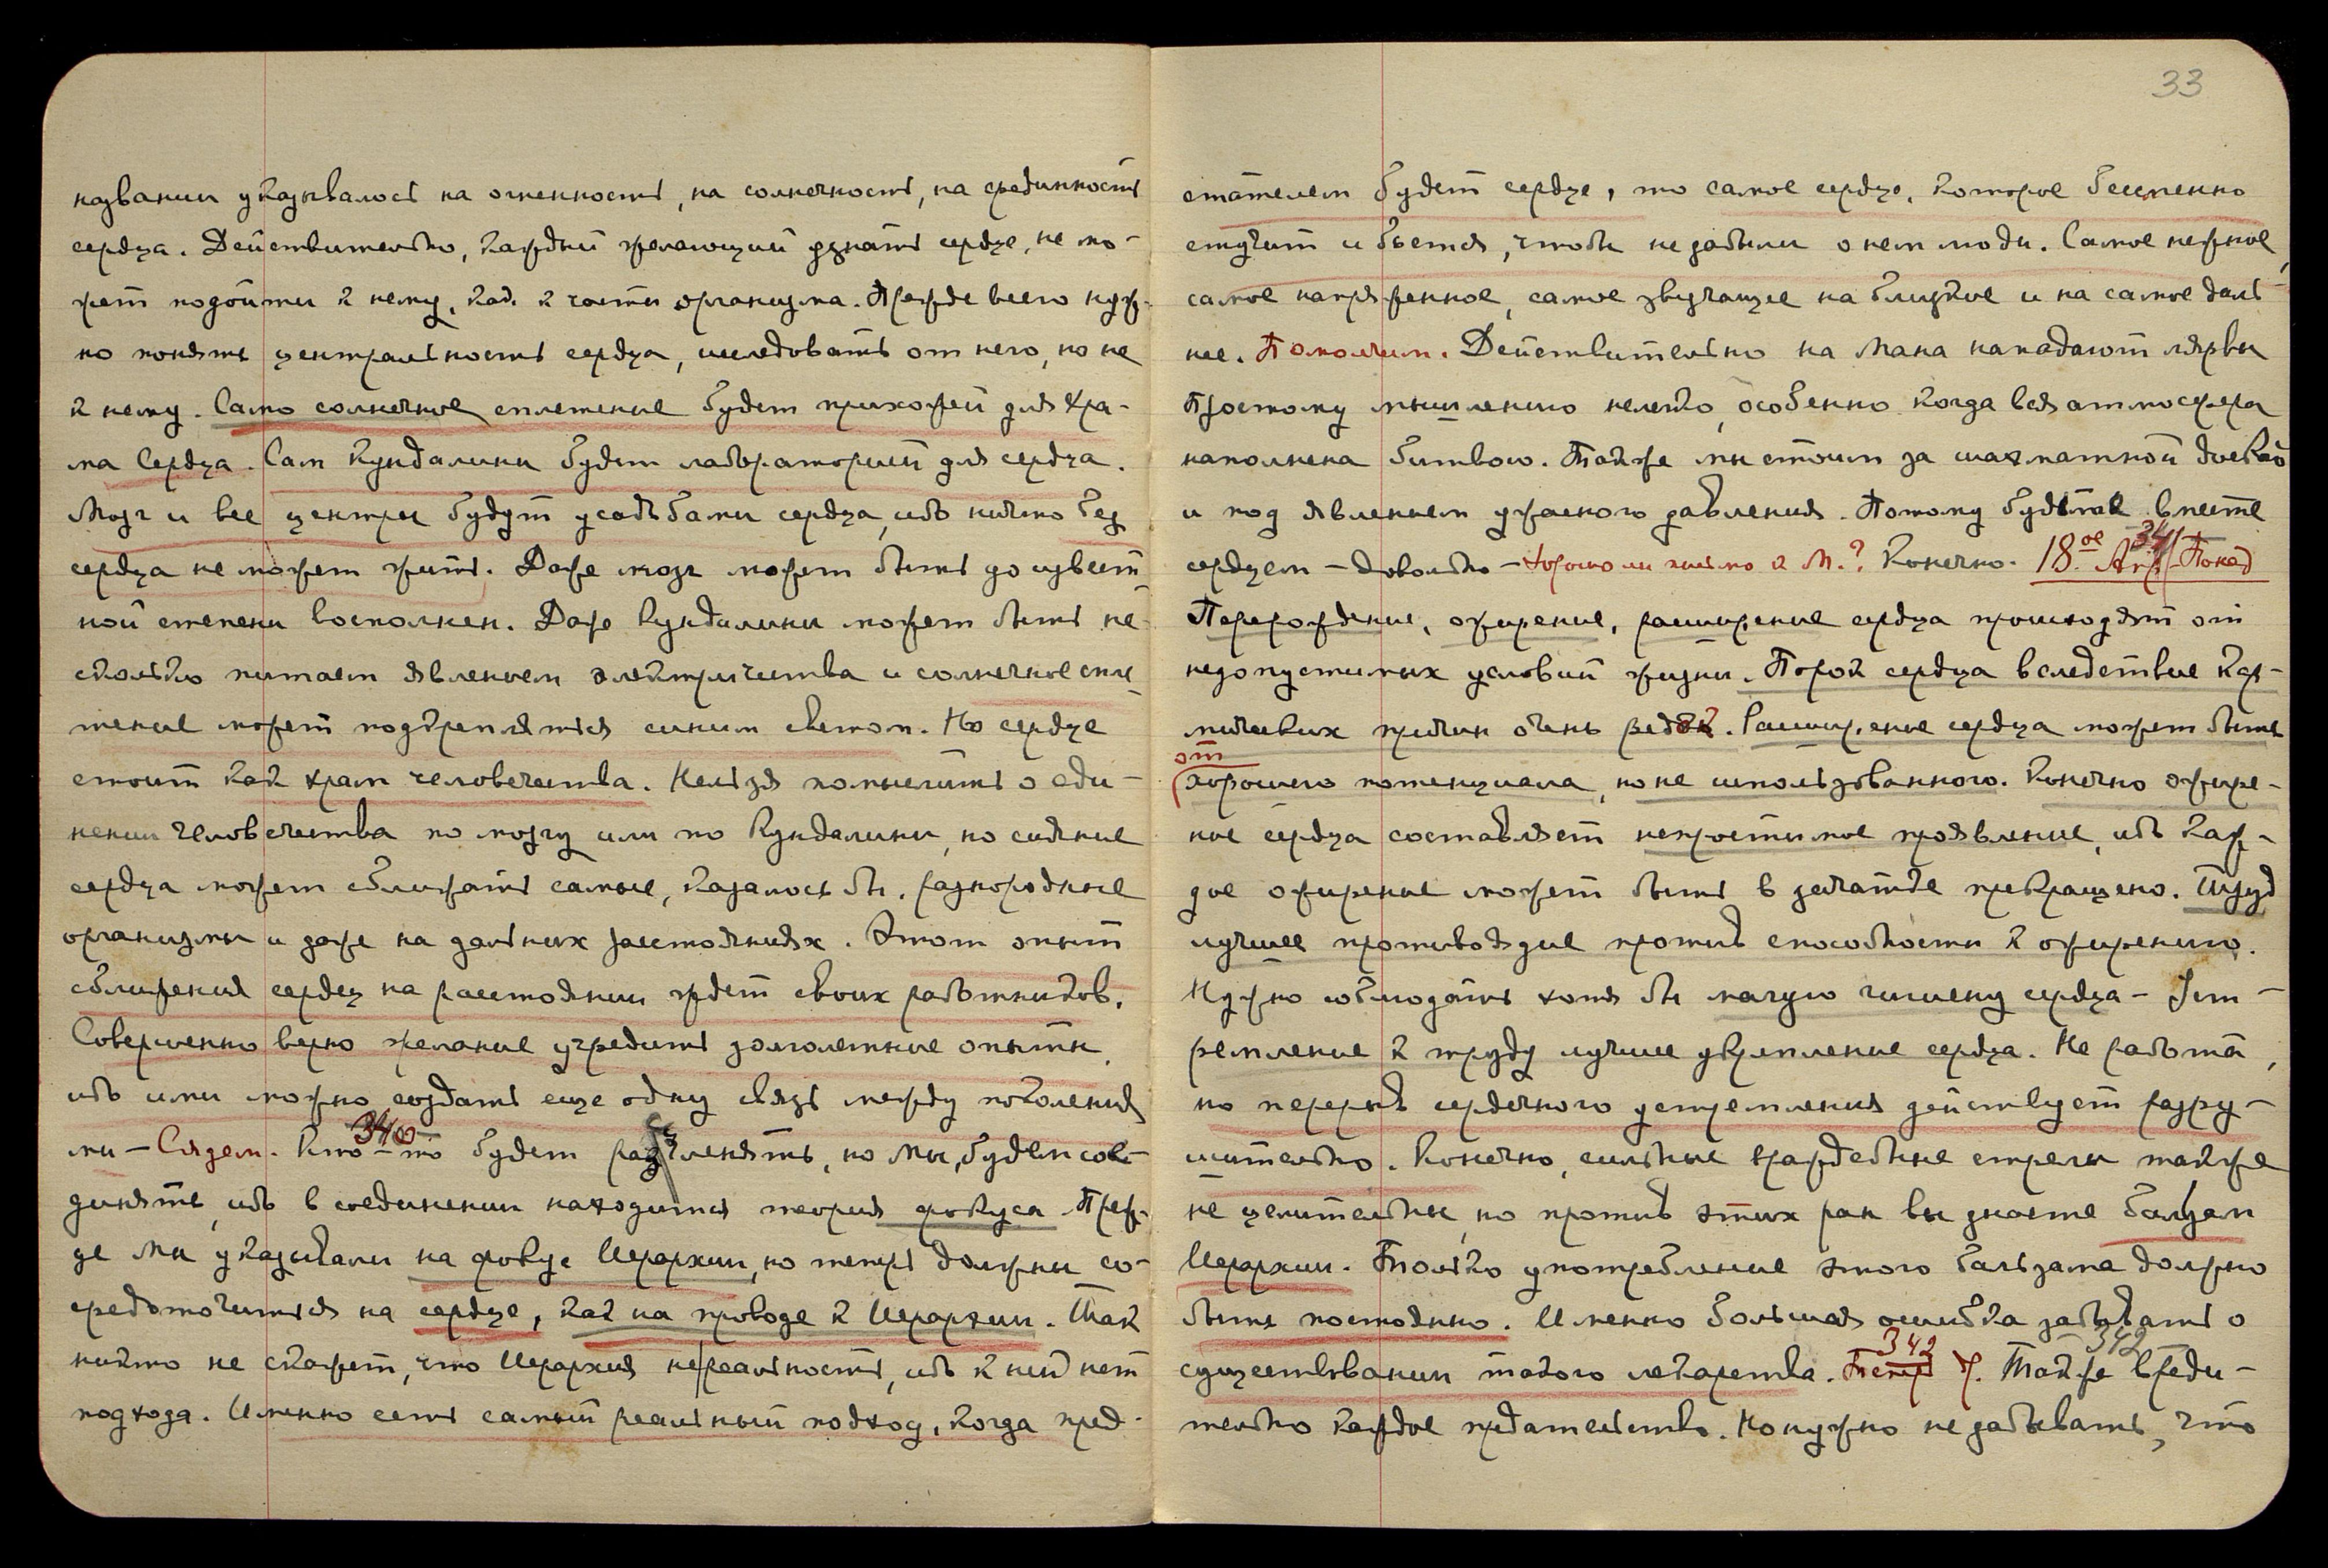 названии указывалось на огненность, на солнечность, на срединность
сердца. Действительно, каждый желающий узнать сердце, не мо-
жет подойти к нему, как к части организма. Прежде всего нуж-
но понять центральность сердца, исследовать от него, но не
к нему. Само солнечное сплетение будет прихожей для хра-
ма Сердца. Сам Кундалини будет лабораторией для сердца.
Мозг и все центры будут усадьбами сердца, ибо ничто без
сердца не может жить. Даже мозг может быть до извест-
ной степени восполнен. Даже Кундалини может быть не-
сколько питаем явленьем электричества и солнечное спле-
тение может подкрепляться синим светом. Но сердце
стоит как храм человечества. Нельзя помыслить о еди-
нении человечества по мозгу или по Кундалини, но сияние
сердца может сближать самые, казалось бы, разнородные
организмы и даже на дальних расстояниях. Этот опыт
сближения сердец на расстоянии ждет своих работников.
Совершенно верно желание учредить долголетние опыты,
ибо ими можно создать еще одну связь между поколения
ми – Сядем. 340 Кто-то будет разъленять, но мы, будем сое-
динять, ибо в соединении находится теория фокуса. Преж-
де мы указывали на фокус Иерархии, но теперь должны со-
средоточиться на сердце, как на проводе к Иерархии. Так
никто не скажет, что Иерархия не реальность, ибо к ней нет
подхода. Именно есть самый реальный подход, когда пред-
33
стателем будет сердце, то самое сердце, которое бессменно
стучит и бьется, чтобы не забыли о нем люди. Самое нежное,
самое напряженное, самое звучащее на близкое и на самое даль-
нее. Помолчим. Действительно на Мана нападают лярвы
Простому мышлению нелегко, особенно когда вся атмосфера
наполнена битвою. Также мы стоим за шахматной доской
и под явленьем ужасного давления. Потому будьте вместе
сердцем – Довольно – Хорошо ли письмо к М.? Конечно. 18.ое Апр. 341 Покад
Перерождение, ожирение, расширение сердца происходят от
недопустимых условий жизни. Порок сердца вследствие кар-
мических причин очень редок. Расширение сердца может быть
от хорошего потенциала, но не использованного. Конечно ожире-
ние сердца составляет непростимое проявление, ибо каж-
дое ожиренье может быть в зачатке прекращено. Труд
лучшее противоядие против способности к ожирению.
Нужно соблюдать хотя бы малую гигиену сердца – Уст-
ремление к труду лучшее укрепление сердца. Не работа,
но перерыв сердечного устремления действует разру-
шительно. Конечно, сильные враждебные стрелы также
не целительны, но против этих ран вы знаете бальзам
Иерархии. Только употребление этого бальзама должно
быть постоянно. Именно большая ошибка забывать о
существовании такого лекарства. 342 Теперь Ч. 342 Также вреди-
тельно каждое предательство. Но нужно не забывать, что